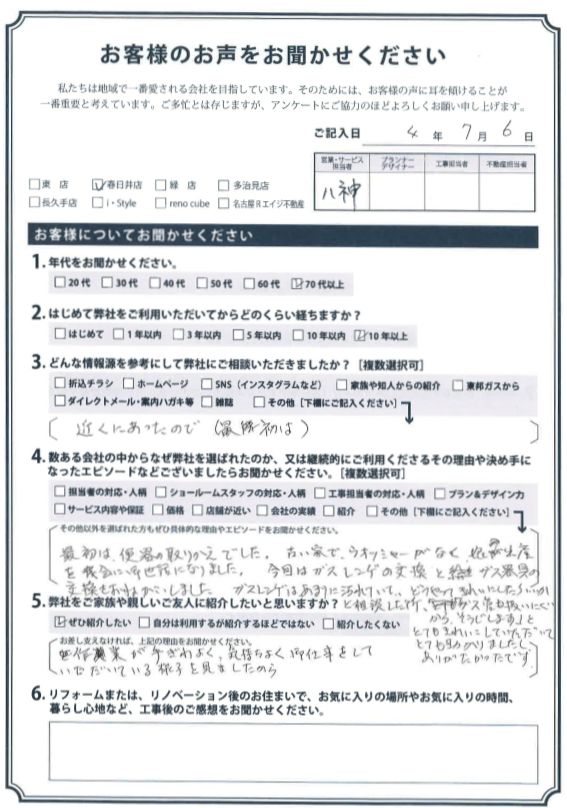 お客様のお声をお聞かせください
私たちは地域で一番愛される会社を目指しています。そのためには、お客様の声に耳を傾けることが
一番重要と考えています。ご多忙とは存じますが、アンケートにご協力のほどよろしくお願い申し上げます。
ご記入日 4 年 7 月 6 日
営業・サービス担当者 プランナーデザイナー 工事担当者 不動産担当者
八神
□東 店 ☑春日井店 □緑 店 □多治見店
□長久手店 □i・Style □reno cube □名古屋Rエイジ不動産
お客様についてお聞かせください
1. 年代をお聞かせください。
□20代 □30代 □40代 □50代 □60代 ☑70代以上
2. はじめて弊社をご利用いただいてからどのくらい経ちますか？
□はじめて □1年以内 □3年以内 □5年以内 □10年以内 ☑10年以上
3. どんな情報源を参考にして弊社にご相談いただきましたか？［複数選択可］
□折込チラシ □ホームページ □SNS（インスタグラムなど） □家族や知人からの紹介 □東邦ガスから
□ダイレクトメール・案内ハガキ等 □雑誌 □その他［下欄にご記入ください］
近くにあったので（最初は）
4. 数ある会社の中からなぜ弊社を選ばれたのか、又は継続的にご利用くださるその理由や決め手に
なったエピソードなどございましたらお聞かせください。［複数選択可］
□担当者の対応・人柄 □ショールームスタッフの対応・人柄 □工事担当者の対応・人柄 □プラン＆デザイン力
□サービス内容や保証 □価格 □店舗が近い □会社の実績 □紹介 □その他［下欄にご記入ください］
その他以外を選ばれた方もぜひ具体的な理由やエピソードをお聞かせください。
最初は、便器の取りかえでした。古い家で、ウオッシャーがなく 出産
を機会に お世話になりました。今回はガスレンゲの交換と ガス器具の
交換もおねがいしました ガスレンゲはあまりに汚れていて、どうやってきれいにしたらいいか
と相談した所、 ガス管も扱いにくい
から、そうじします」と
とてもきれいにしていただいて
とても助かりましたし
ありがたかったです
5. 弊社をご家族や親しいご友人に紹介したいと思いますか？
☑ぜひ紹介したい □自分は利用するが紹介するほどではない □紹介したくない
お差し支えなければ、上記の理由をお聞かせください。
作業が 手ぎわよく、気持ちよく御仕事をして
いただいている様子を見ましたから
6. リフォームまたは、リノベーション後のお住まいで、お気に入りの場所やお気に入りの時間、
暮らし心地など、工事後のご感想をお聞かせください。